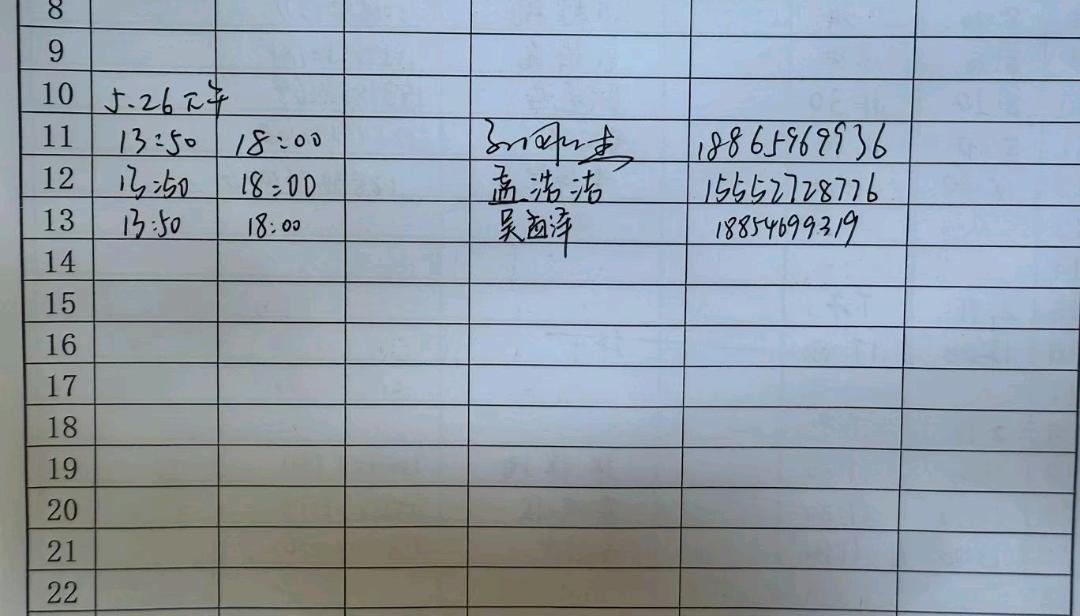 8
9
10 5.26下午
11 13:50 18:00 18865969936
12 13:50 18:00 孟浩洁 15552728776
13 13:50 18:00 吴 泽 18854699319
14
15
16
17
18
19
20
21
22